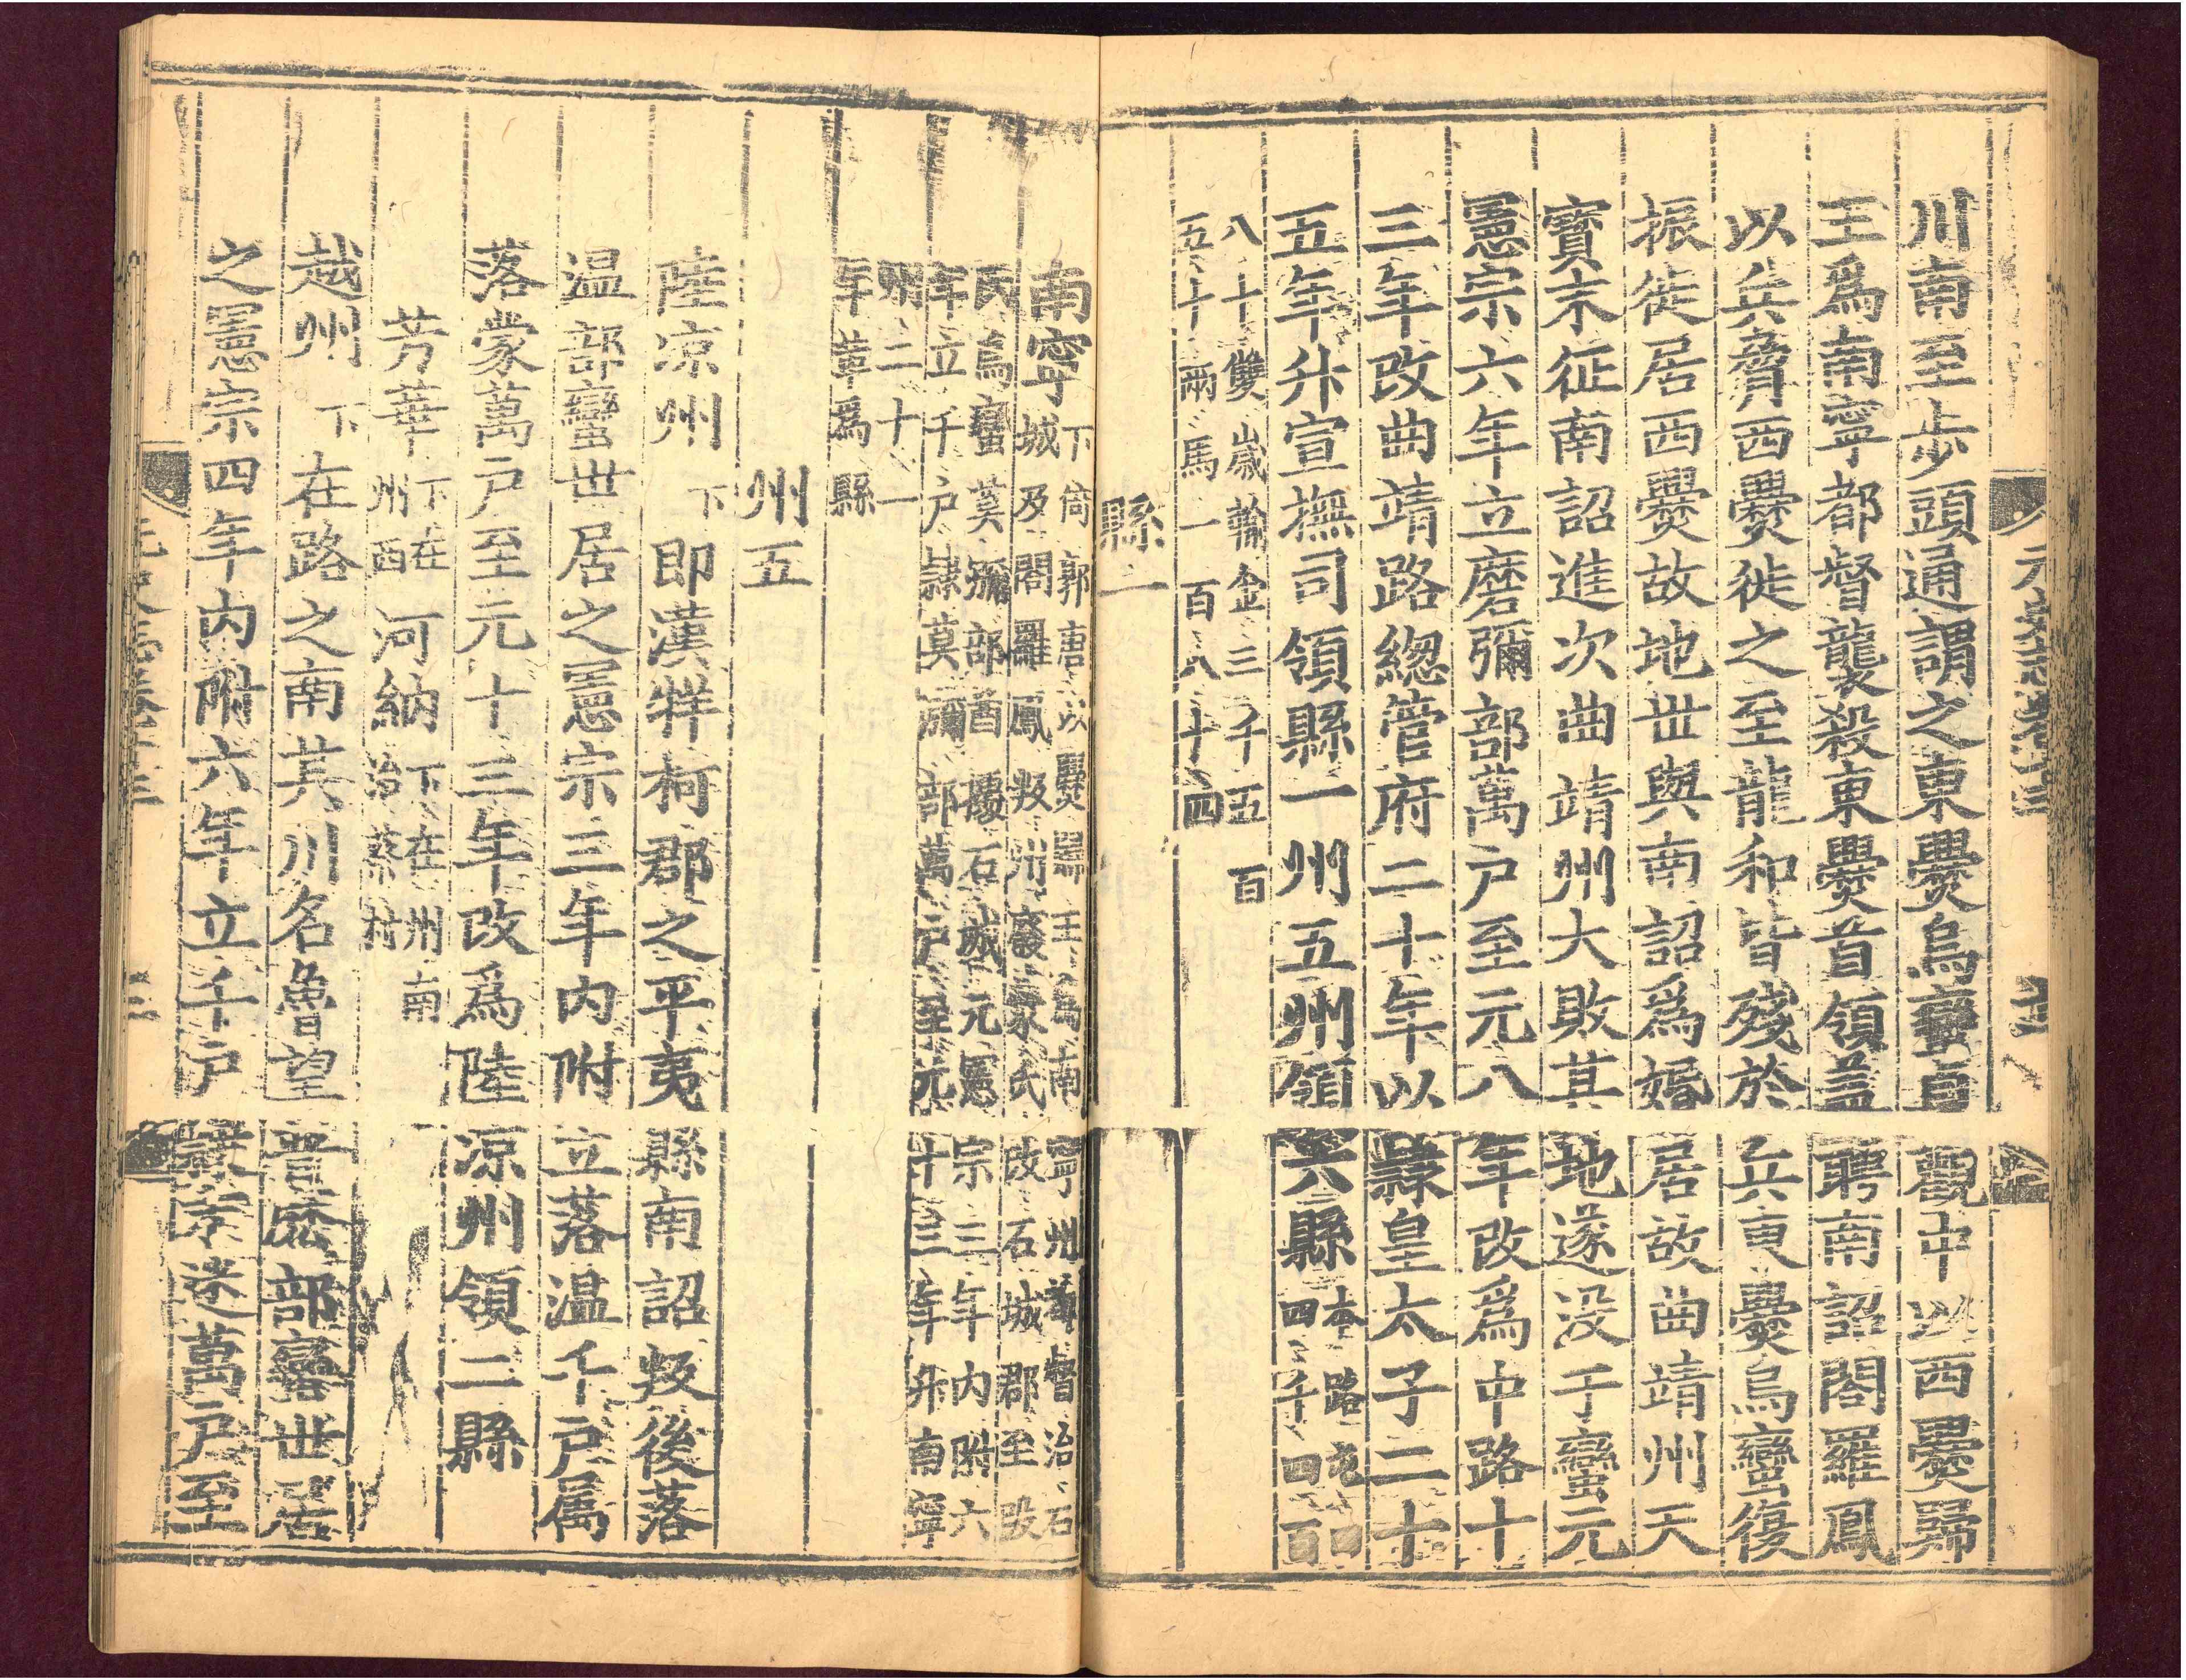 川南至步頭通謂之東爨烏蠻貞觀中以西爨歸
王爲南寧都督襲殺東爨首領蓋聘南詔閣羅鳳
以兵脅西爨徙之至龍和皆殘於兵東爨烏蠻復
振徙居西爨故地世與南詔爲婚居故曲靖州天
寶末征南詔進次曲靖州大敗其地遂没于蠻元
憲宗六年立磨彌部萬户至元八年改爲中路十
三年改曲靖路緫管府二十年以隸皇太子二十
五年升宣撫司領縣一州五州領六縣本路屯
四千四百
八十雙歲輸金三千五百
五十兩馬一百八十四
縣一
南寧下倚郭唐以爨歸王爲南寧州都督治石
城及閣羅鳳叛州廢蒙氏改石城郡至段
氏烏蠻莫彌部酋據石城元憲宗三年内附六
年立千户隸莫彌部萬户至元十三年升南寧
州二十一
年革爲縣
州五
陸凉州下即漢牂柯郡之平夷縣南詔叛後落
温部蠻世居之憲宗三年内附立落温千户属
落蒙萬户至元十三年改爲陸凉州領二縣
芳華下在州西河納下在州南治蔡村
越州下在路之南其川名魯望普麽部蠻世居
之憲宗四年内附六年立千户隸末迷萬户至